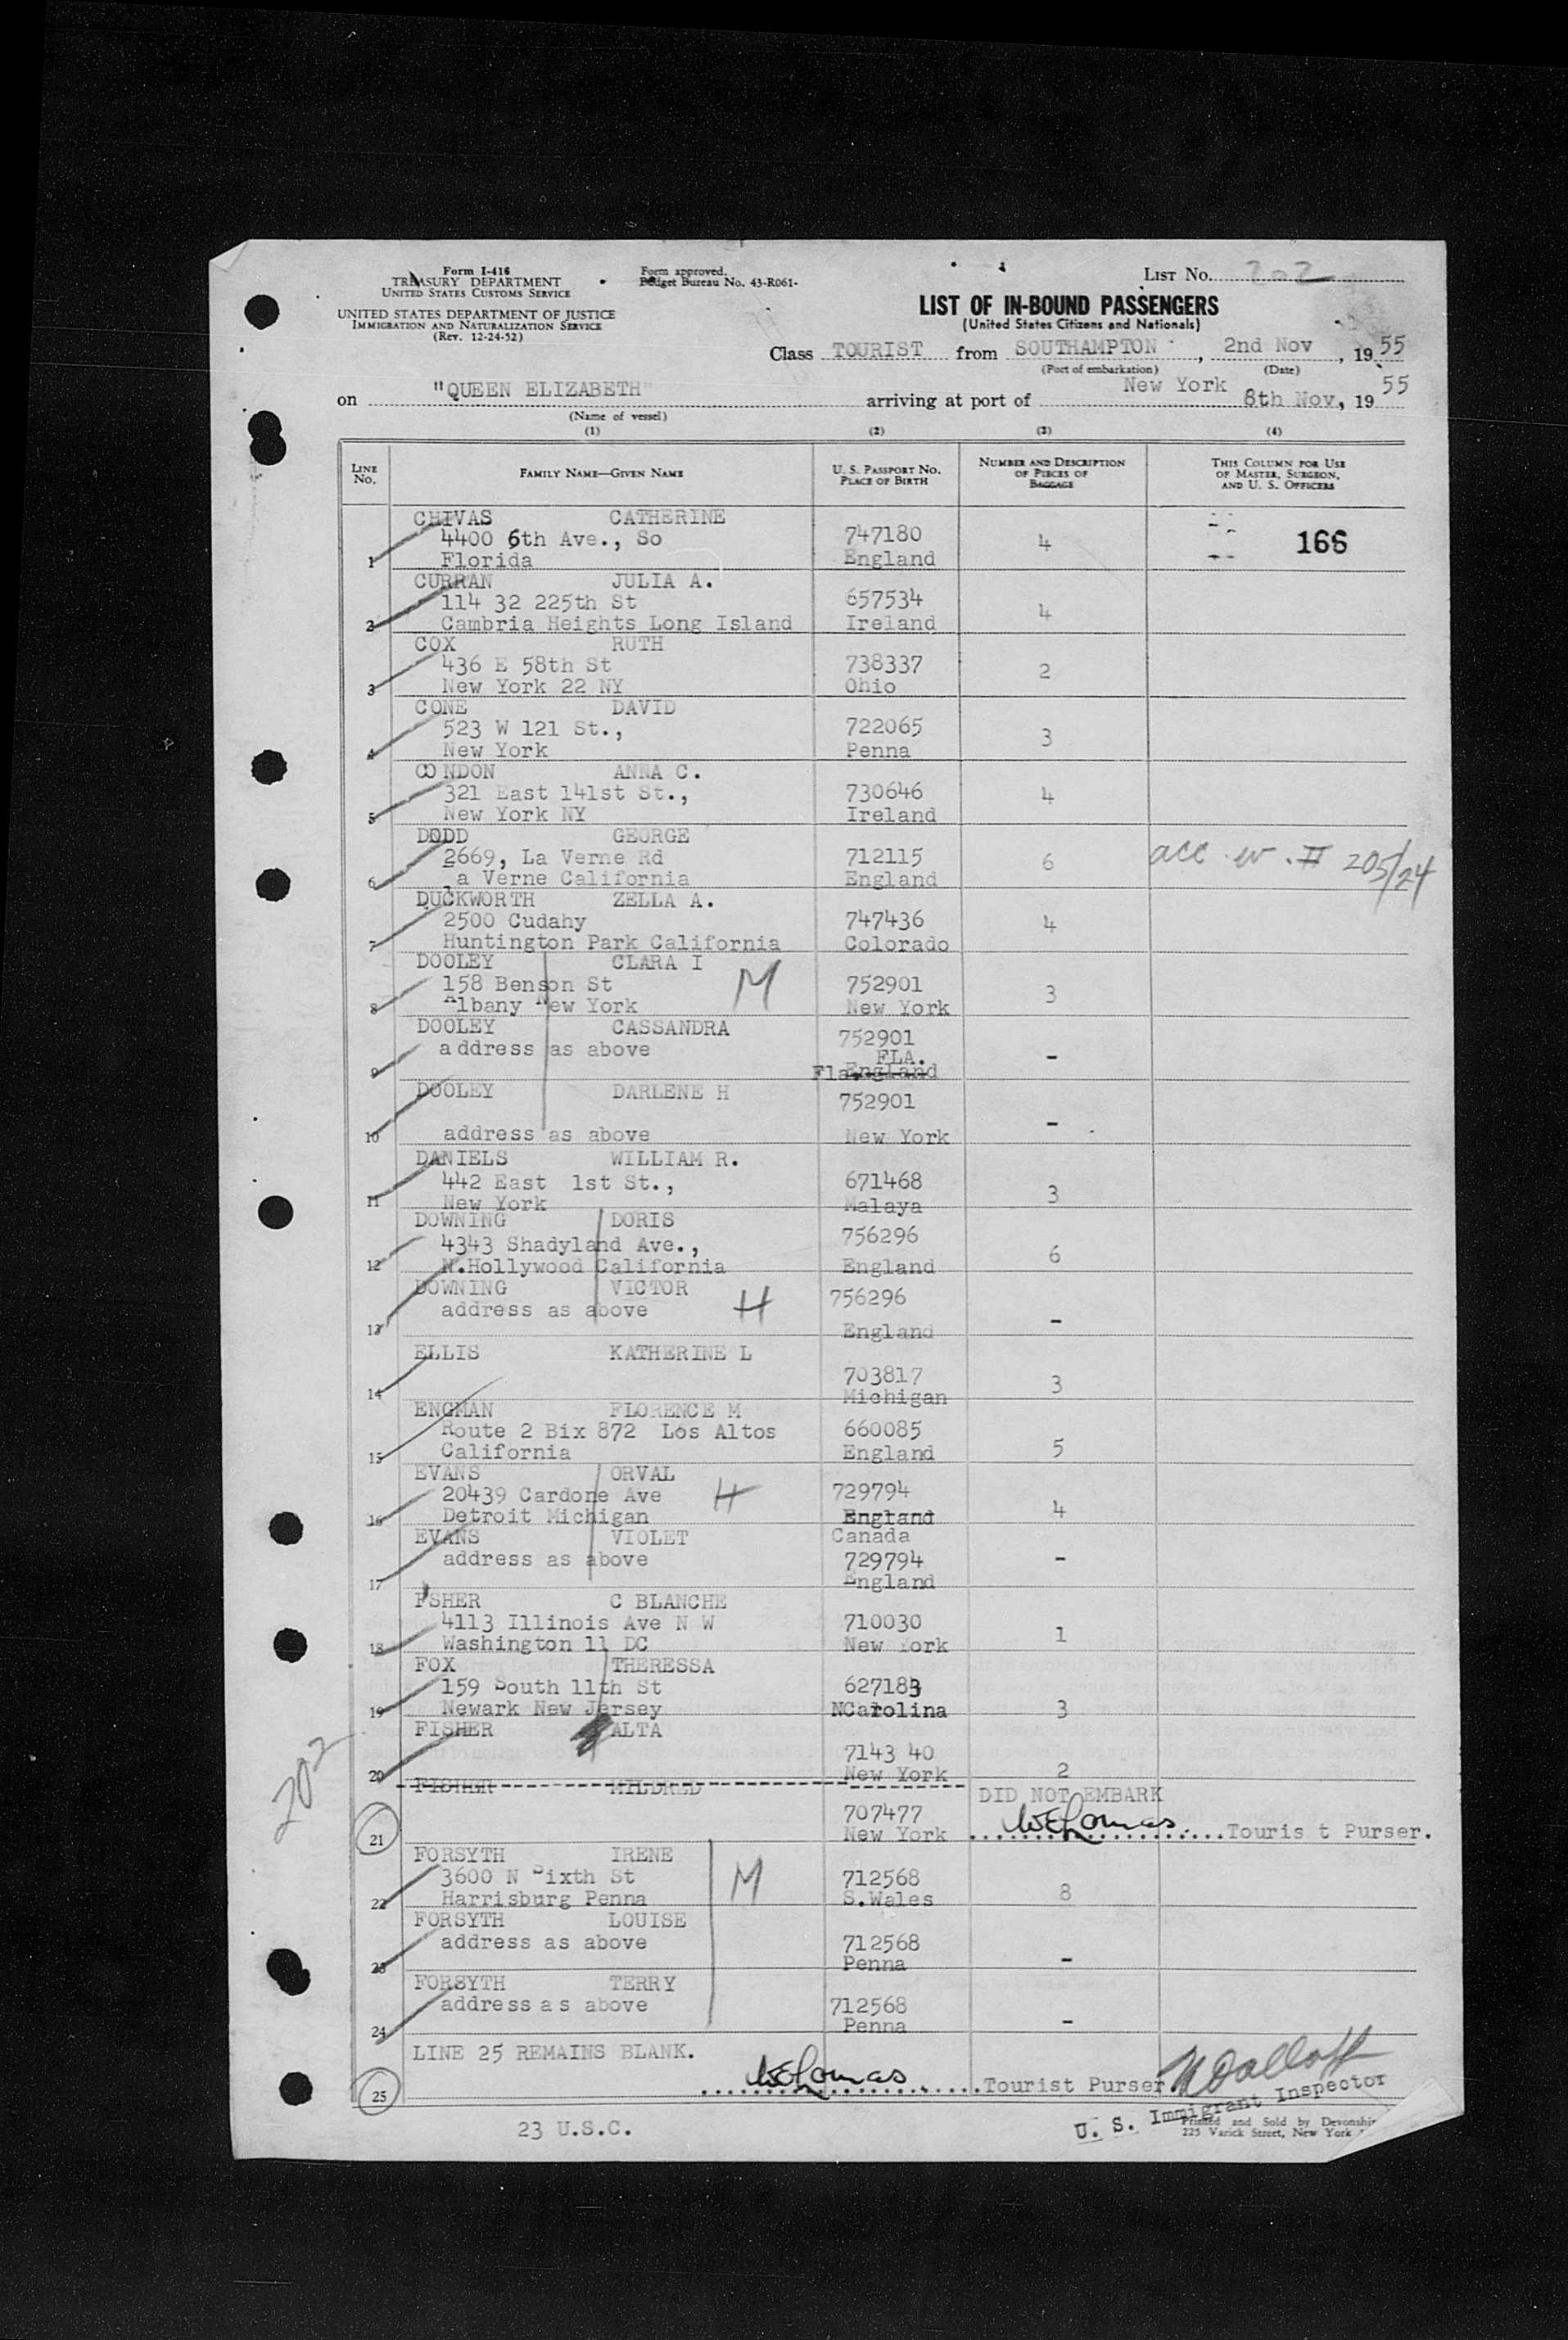 Form I-416
TREASURY DEPARTMENT
UNITED STATES CUSTOMS SERVICE
UNITED STATES DEPARTMENT OF JUSTICE
IMMIGRATION AND NATURALIZATION SERVICE
(Rev. 12-24-52)
Form approved.
Budget Bureau No. 43-R061-
LIST NO. 202
LIST OF IN-BOUND PASSENGERS
(United States Citizens and Nationals)
Class TOURIST from SOUTHAMPTON, 2nd Nov, 1955
(Port of embarkation) (Date)
on "QUEEN ELIZABETH" arriving at port of New York 8th Nov, 1955
(Name of vessel)
(1) (2) (3) (4)
LINE NO. FAMILY NAME—GIVEN NAME U. S. PASSPORT NO. PLACE OF BIRTH NUMBER AND DESCRIPTION OF PIECES OF BAGGAGE THIS COLUMN FOR USE OF MASTER, SURGEON, AND U. S. OFFICERS
CHIVAS CATHERINE
4400 6th Ave., So 747180 4 166
1 Florida England
CURRAN JULIA A.
114 32 225th St 657534 4
2 Cambria Heights Long Island Ireland
COX RUTH
436 E 58th St 738337 2
3 New York 22 NY Ohio
CONE DAVID
523 W 121 St., 722065 3
4 New York Penna
CONDON ANNA C.
321 East 141st St., 730646 4
5 New York NY Ireland
DODD GEORGE
2669, La Verne Rd 712115 6 205/24
6 a Verne California England
DUCKWORTH ZELLA A.
2500 Cudahy 747436 4
7 Huntington Park California Colorado
DOOLEY CLARA I M
158 Benson St 752901 3
8 Albany New York New York
DOOLEY CASSANDRA 752901
address as above FLA. -
9 Fla. England
DOOLEY DARLENE H 752901
10 address as above New York -
DANIELS WILLIAM R.
442 East 1st St., 671468 3
11 New York Malaya
DOWNING DORIS 756296
4343 Shadyland Ave., 6
12 N.Hollywood California England
DOWNING VICTOR 756296
address as above H -
13 England
ELLIS KATHERINE L
703817 3
14 Michigan
ENGMAN FLORENCE M
Route 2 Bix 872 Los Altos 660085 5
15 California England
EVANS ORVAL
20439 Cardone Ave H 729794 4
16 Detroit Michigan England
EVANS VIOLET Canada
address as above 729794 -
17 England
FSHER C BLANCHE
4113 Illinois Ave N W 710030 1
18 Washington 11 DC New York
FOX THERESSA
159 South 11th St 627183
19 Newark New Jersey NCarolina 3
FISHER ALTA
7143 40
20 New York 2
FISHER MILDRED DID NOT EMBARK
707477
21 New York WELomas Touris t Purser.
FORSYTH IRENE
3600 N Sixth St M 712568 8
22 Harrisburg Penna S.Wales
FORSYTH LOUISE
address as above 712568
23 Penna -
FORSYTH TERRY
address as above 712568
24 Penna -
LINE 25 REMAINS BLANK.
25 WELomas Tourist Purser
U. S. Immigrant Inspector
23 U.S.C.
Printed and Sold by
225 Varick Street, New York
202